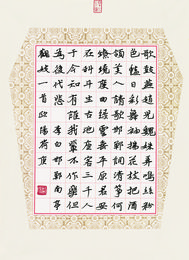 歌鼓燕趙兒魏姝弄鳴絲粉
色艷日彩舞袖拂花枝把酒
領美人請歌邯鄲詞清箏何
繚繞度曲綠雲垂平原君安
在科斗生古池座客三千人
于今知有誰我輩不作樂但
為後代悲 李白邯鄲南亭
觀妓一首 歐陽